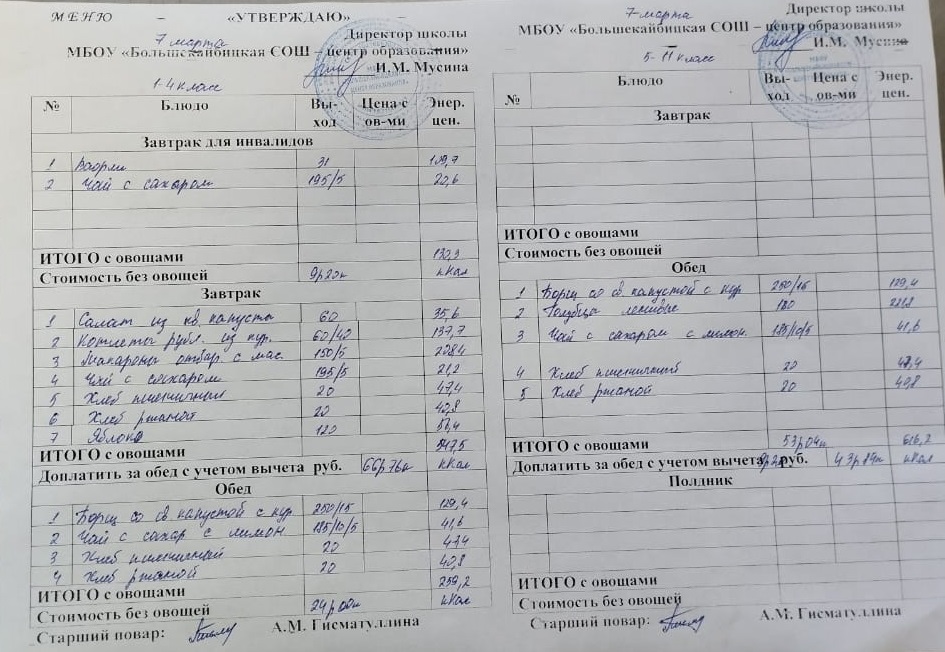 МЕНЮ – «УТВЕРЖДАЮ» –
7 марта Директор школы
МБОУ «Большекайбицкая СОШ – центр образования»
И.М. Мусина
1-4 класс
№ Блюдо Вы-ход Цена с ов-ми Энер. цен.
Завтрак для инвалидов
1 31 109,7
2 Чай с сахаром 195/5
ИТОГО с овощами 130,3
Стоимость без овощей 9р20к кКал
Завтрак
1 Салат из кв. капусты 60 35,6
2 Котлеты рубл. из кур. 60/40 137,7
3 Макароны отвар. с мас. 150/5
4 Чай с сахаром 195/5 21,2
5 Хлеб пшеничный 20 47,4
6 Хлеб ржаной 20 40,8
7 Яблоко 120
ИТОГО с овощами 547,5
Доплатить за обед с учетом вычета руб. 66р76к кКал
Обед
1 Борщ со св капустой с кур 250/15 129,4
2 Чай с сахар с лимон. 185/10/5 41,6
3 Хлеб пшеничный 20 47,4
4 Хлеб ржаной 20 40,8
ИТОГО с овощами 259,2
Стоимость без овощей 24р00к кКал
Старший повар: А.М. Гисматуллина
7-марта Директор школы
МБОУ «Большекайбицкая СОШ – центр образования»
И.М. Мусина
5-11 класс
№ Блюдо Вы-ход Цена с ов-ми Энер. цен.
Завтрак
ИТОГО с овощами
Стоимость без овощей
Обед
1 Борщ со св. капустой с кур 250/15 129,4
2 Голубцы ленивые 180
3 Чай с сахаром с лимон. 185/10/5 41,6
4 Хлеб пшеничный 20 47,4
5 Хлеб ржаной 20 40,8
ИТОГО с овощами 53р04к 616,2
Доплатить за обед с учетом вычета руб. 43р84к кКал
Полдник
ИТОГО с овощами
Стоимость без овощей
Старший повар: А.М. Гисматуллина